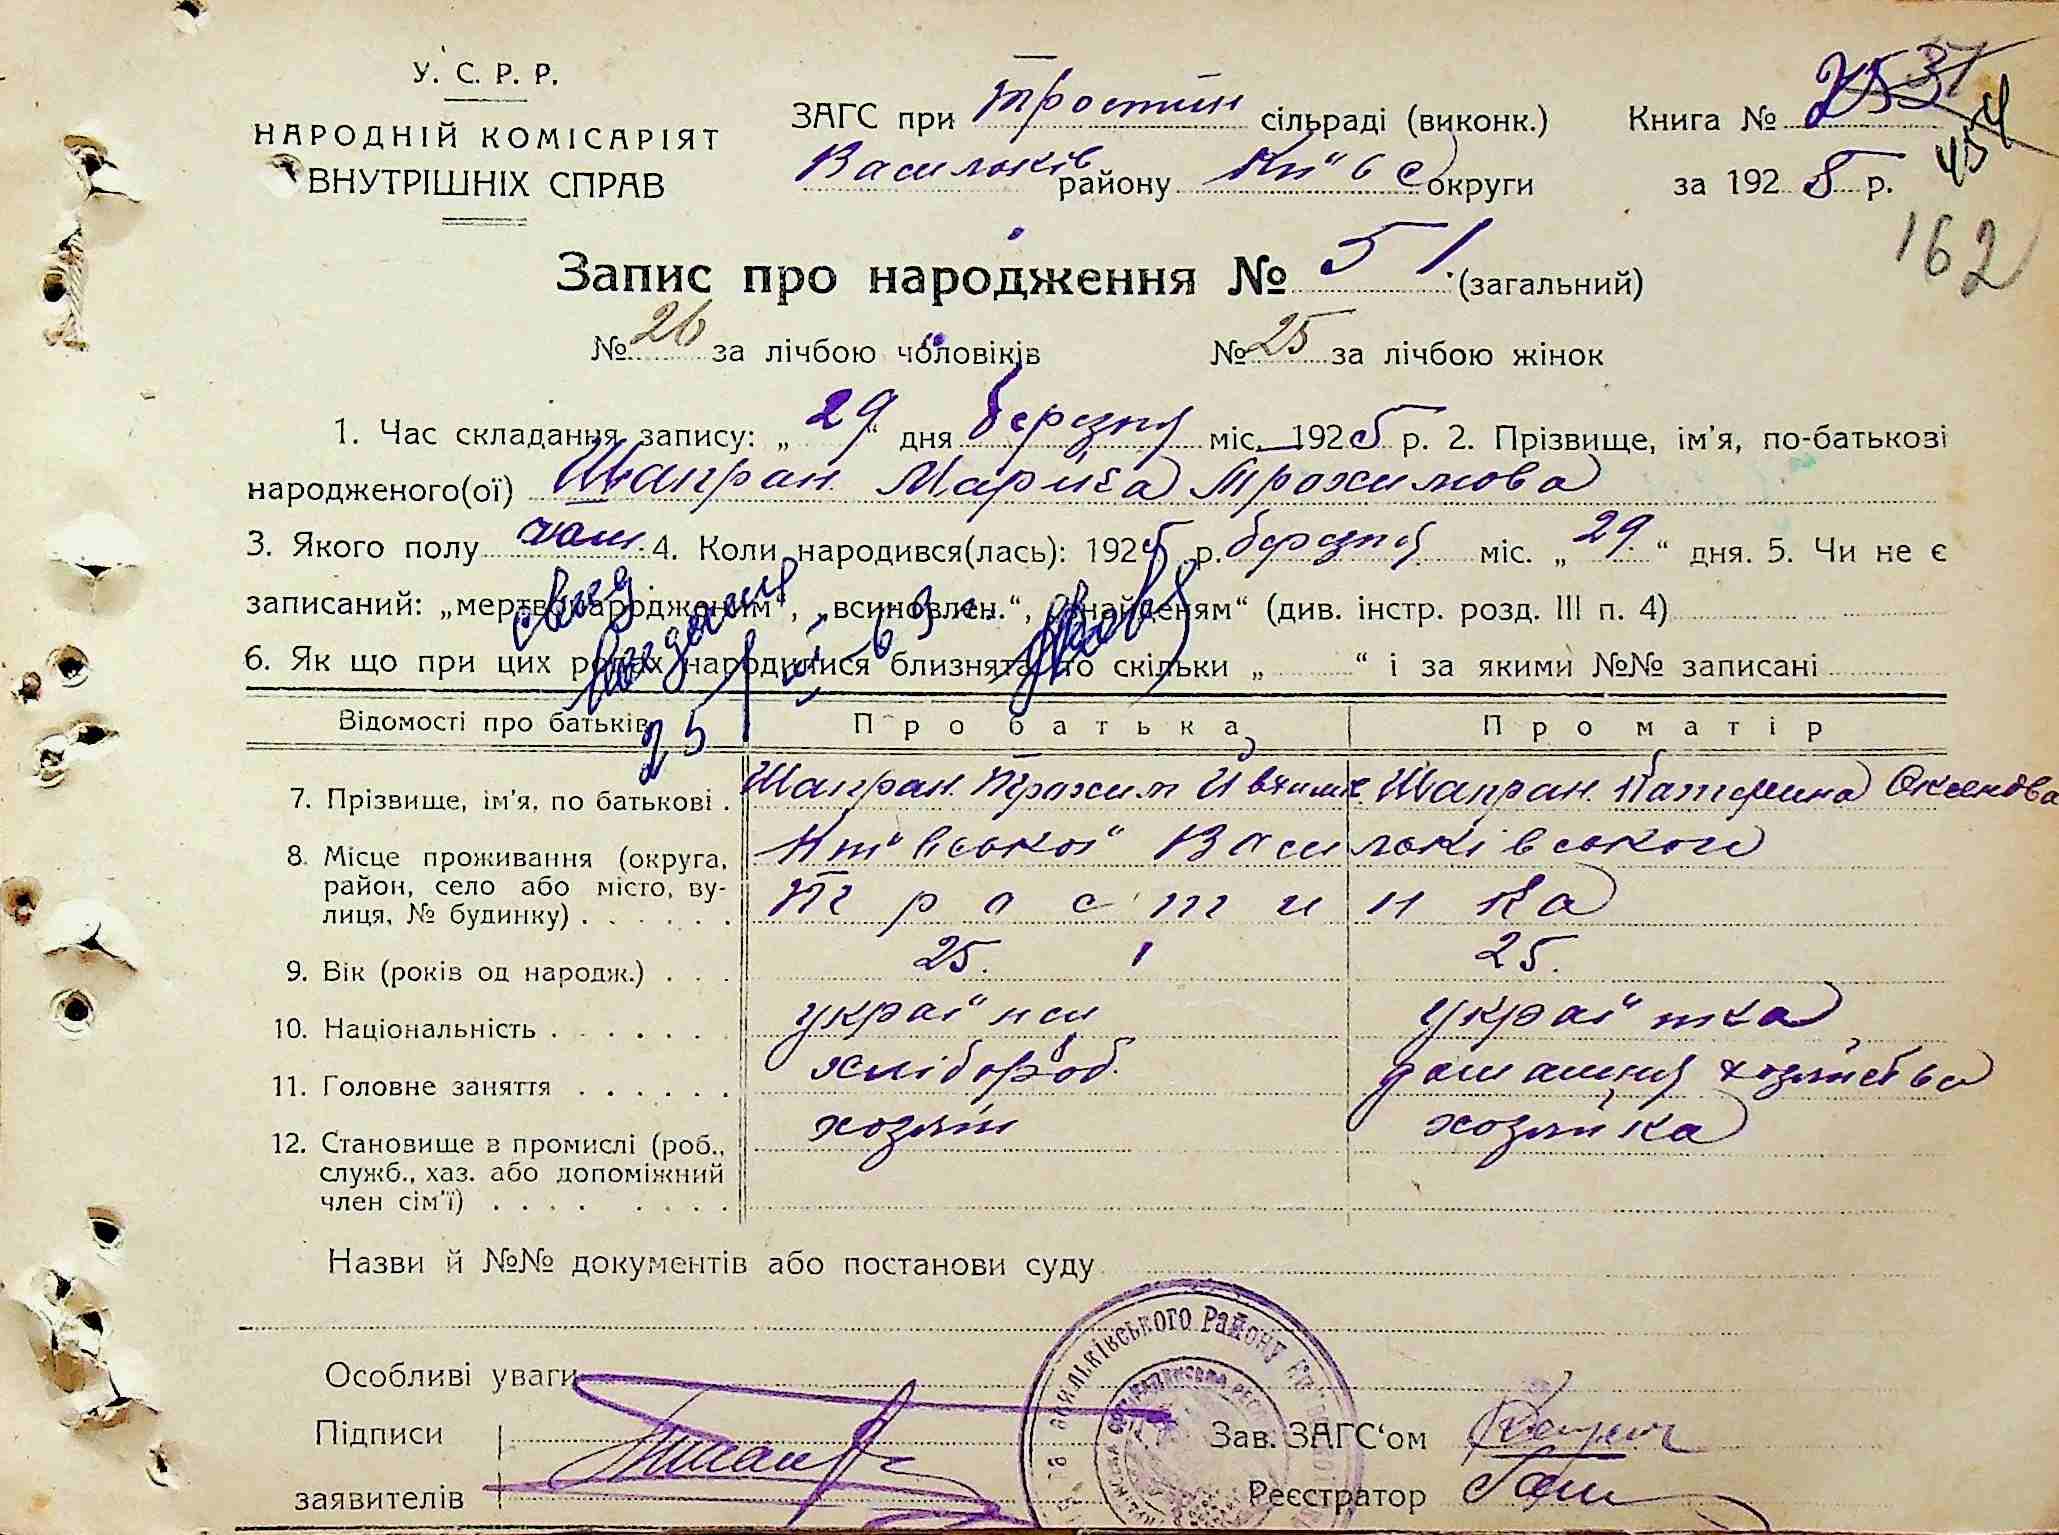 У. С. Р. Р.
НАРОДНІЙ КОМІСАРІЯТ
ВНУТРІШНІХ СПРАВ
ЗАГС при Тростин сільраді (виконк.)
Васильків району Київс округи
Книга №
за 1925 р.
454
162
Запис про народження № 51 (загальний)
№ 26 за лічбою чоловіків № 25 за лічбою жінок
1. Час складання запису: „ 29 “ дня березня міс. 1925 р. 2. Прізвище, ім'я, по-батькові
народженого(ої) Шапран Марија Трохимова
3. Якого полу жін. 4. Коли народився(лась): 1925 р. березня міс. „ 29 “ дня. 5. Чи не є
записаний: „мертвонародженим“, „всиновлен.“, „знайденям“ (див. інстр. розд. III п. 4)
6. Як що при цих родах народилися близнята то скільки „ “ і за якими №№ записані
25
Відомості про батьків Про батька Про матір
7. Прізвище, ім'я, по батькові . Шапран Трохим Шапран Катерина
8. Місце проживання (округа, район, село або місто, вулиця, № будинку) . . . . . . Васильківського
Тростинка
9. Вік (років од народж.) . . . 25. 25.
10. Національність . . . . . . . українец українка
11. Головне заняття . . . . . . хлібороб. домашня хозяйства
12. Становище в промислі (роб., служб., хаз. або допоміжний член сім'ї) . . . . . . . . хозяїн хозяйка
Назви й №№ документів або постанови суду
Особливі уваги
Підписи
заявителів
Зав. ЗАГС‘ом
Реєстратор